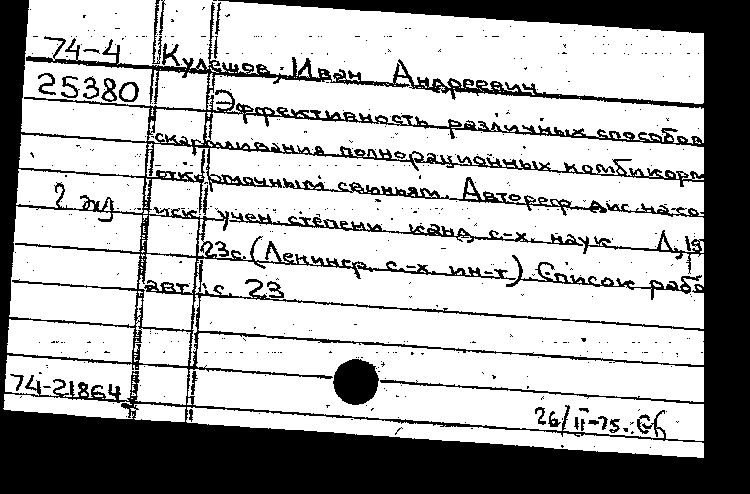 74-4 Кулешов, Иван Андреевич
25380 Эффективность различных способов
скармливания полнорационных комбикорм
откормочным свиньям. Автореф. дис. на со-
2 экз иск. учен. степени канд. с-х. наук. Л, 19
23с. (Ленингр. с.-х. ин-т) Список рабо
авт.: с. 23
74-21864
26/II-75.